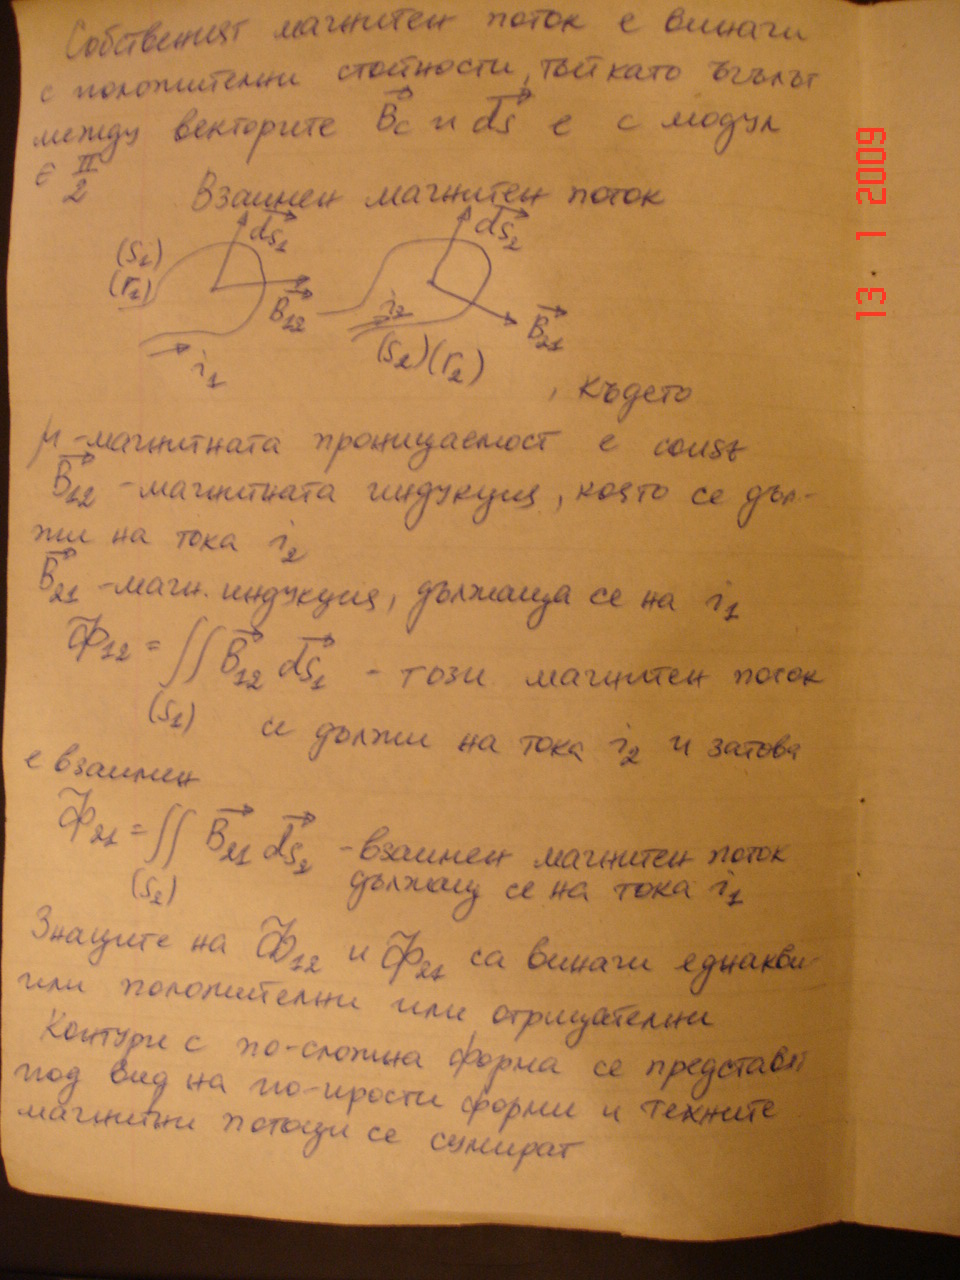 Собственият магнитен поток е винаги
с положителни стойности, тъй като ъгълът
между векторите B⃗c и ds⃗ е с модул
∈ π/2
Взаимен магнитен поток
(S1)
(Γ1)
ds⃗1
B⃗12
i1
ds⃗2
i2
B⃗21
(S2)(Γ2)
, където
μ-магнитната проницаемост е const
B⃗12 -магнитната индукция, която се дъл-
жи на тока i2
B⃗21 -магн. индукция, дължаща се на i1
Ф12 = ∬ B⃗12 ds⃗1 - този магнитен поток
(S1) се дължи на тока i2 и затова
е взаимен
Ф21 = ∬ B⃗21 ds⃗2 -взаимен магнитен поток
(S2) дължащ се на тока i1
Знаците на Ф12 и Ф21 са винаги еднакви
или положителни или отрицателни
Контури с по-сложна форма се представят
под вид на по-прости форми и техните
магнитни потоци се сумират
13 1 2009